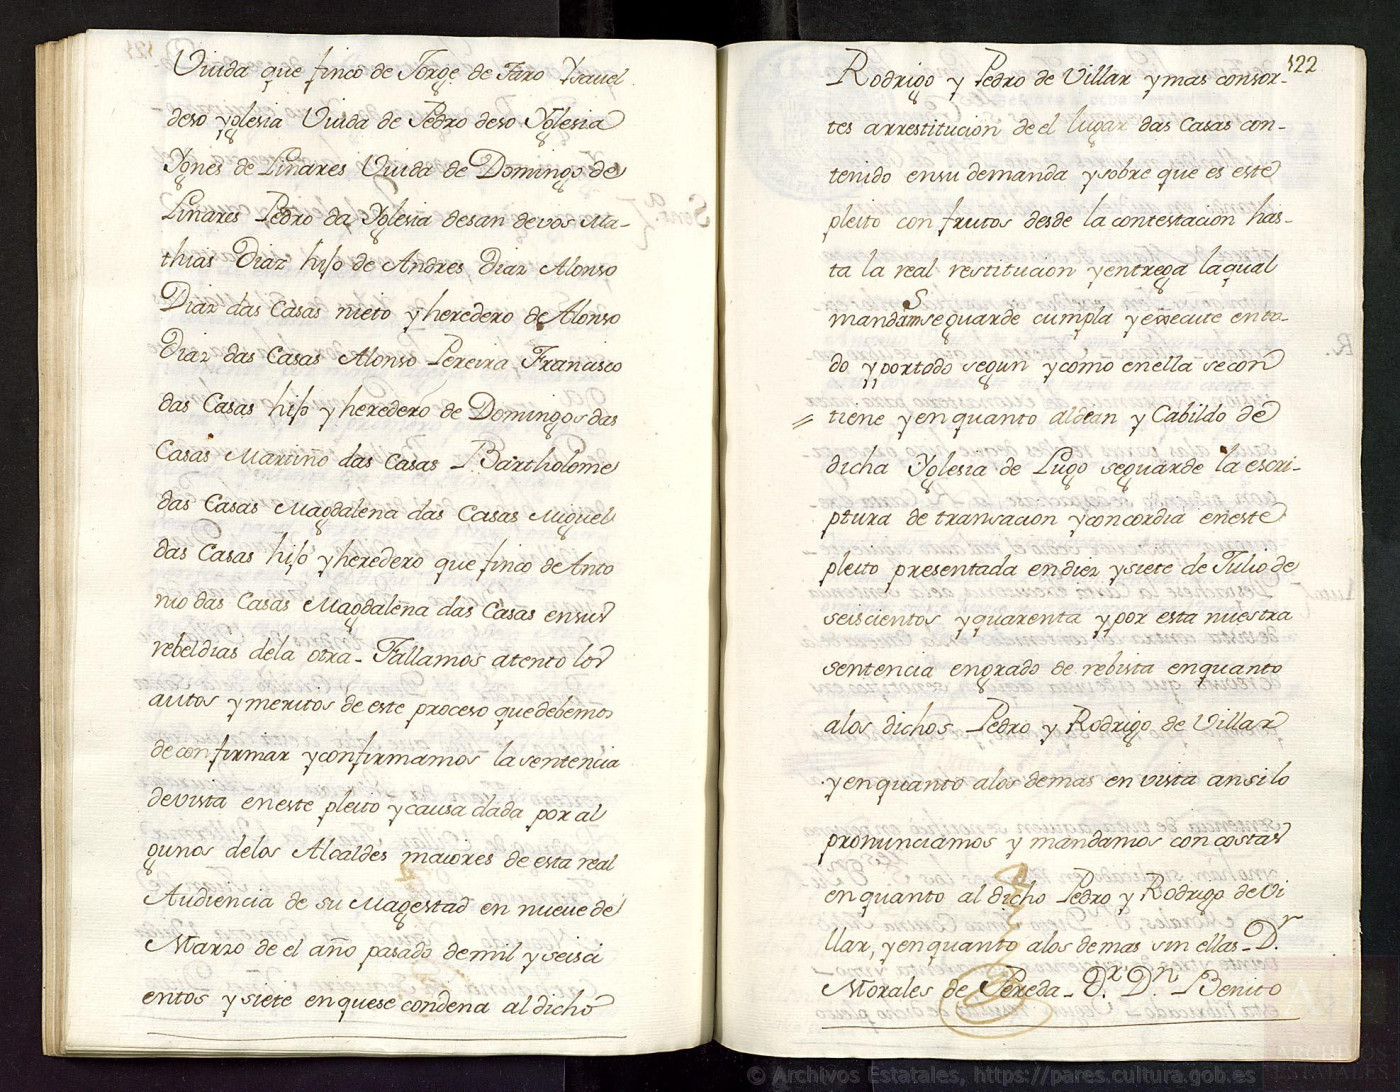 Viuda que finco de Jorge de Faro Ysavel
deso yglesia Viuda de Pedro deso Yglesia
Ygnes de Linares Viuda de Domingos de
Linares Pedro da Yglesia desan devos Ma-
thias Diaz hijo de Andres Diaz Alonso
Diaz das Casas nieto y heredero de Alonso
Diaz das Casas Alonso Pereira Francisco
das Casas hijo y heredero de Domingos das
Casas Martiño das Casas Bartholome
das Casas Magdalena das Casas Miguel
das Casas hijo y heredero que finco de Anto
nio das Casas Magdalena das Casas ensus
rebeldias dela otra - Fallamos atento los
autos y meritos de este proceso que debemos
de confirmar y confirmamos la sentencia
de vista en este pleito y causa dada por al
gunos delos Alcaldes maiores de esta real
Audiencia de su Magestad en nueve de
Marzo de el año pasado de mil y seisci
entos y siete en quese condena al dicho
122
Rodrigo y Pedro de Villar y mas consor-
tes arrestitucion de el lugar das Casas con-
tenido ensu demanda y sobre que es este
pleito con frutos desde la contestacion has-
ta la real restitucion y entrega la qual
mandamos se guarde cumpla y execute en to-
do y por todo segun y como en ella se con
= tiene y en quanto al dean y Cabildo de
dicha Yglesia de Lugo seguarde la escri-
ptura de transacion y concordia en este
pleito presentada en diez y siete de Julio de
seiscientos y quarenta y por esta nuestra
sentencia en grado de rebista en quanto
a los dichos Pedro y Rodrigo de Villar
y en quanto alos demas en vista ansi lo
pronunciamos y mandamos con costas
en quanto al dicho Pedro y Rodrigo de Vi
llar, y en quanto alos demas sin ellas - Dr.
Morales de Pereda - Dr. Dn. Benito
© Archivos Estatales, https://pares.cultura.gob.es
ARCHIVOS
ESTATALES